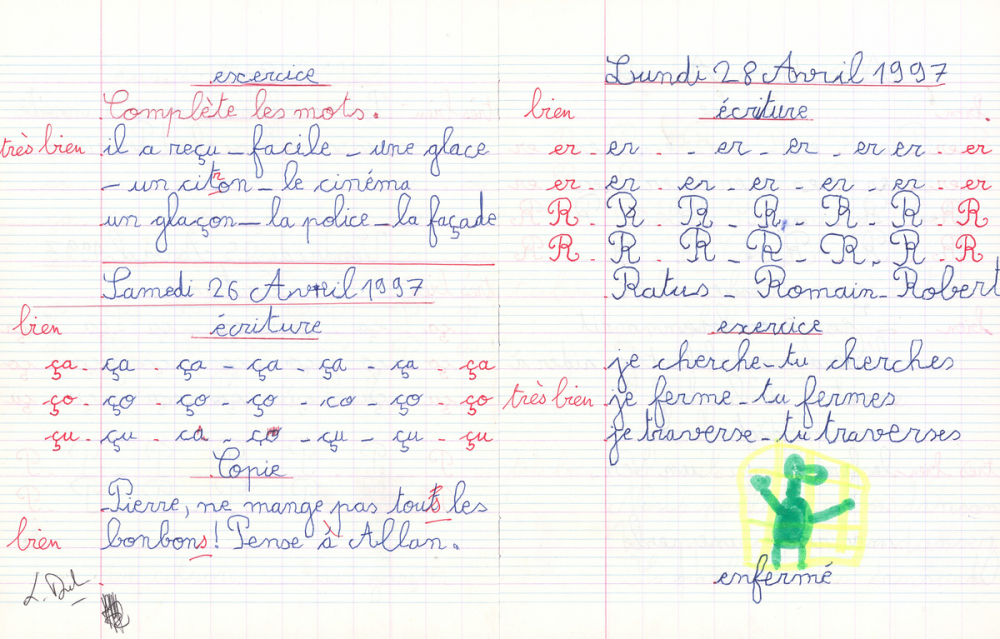 excercice
Complète les mots.
très bien il a reçu – facile – une glace
– un citron – le cinéma
un glaçon – la police – la façade
Samedi 26 Avril 1997
bien
écriture
ça - ça - ça - ça - ça - ça - ça
ço - ço - ço - ço - co - ço - ço
çu - çu - ca - ço - çu - çu - çu
Copie
Pierre, ne mange pas touts les
bien bonbons ! Pense à Allan.
Lundi 28 Avril 1997
bien écriture
er - er - er - er - er er - er
er - er - er - er - er - er - er
R - R - R - R - R - R - R
R - R - R - R - R - R - R
Ratus – Romain – Robert
exercice
je cherche – tu cherches
très bien je ferme – tu fermes
je traverse – tu traverses
enfermé